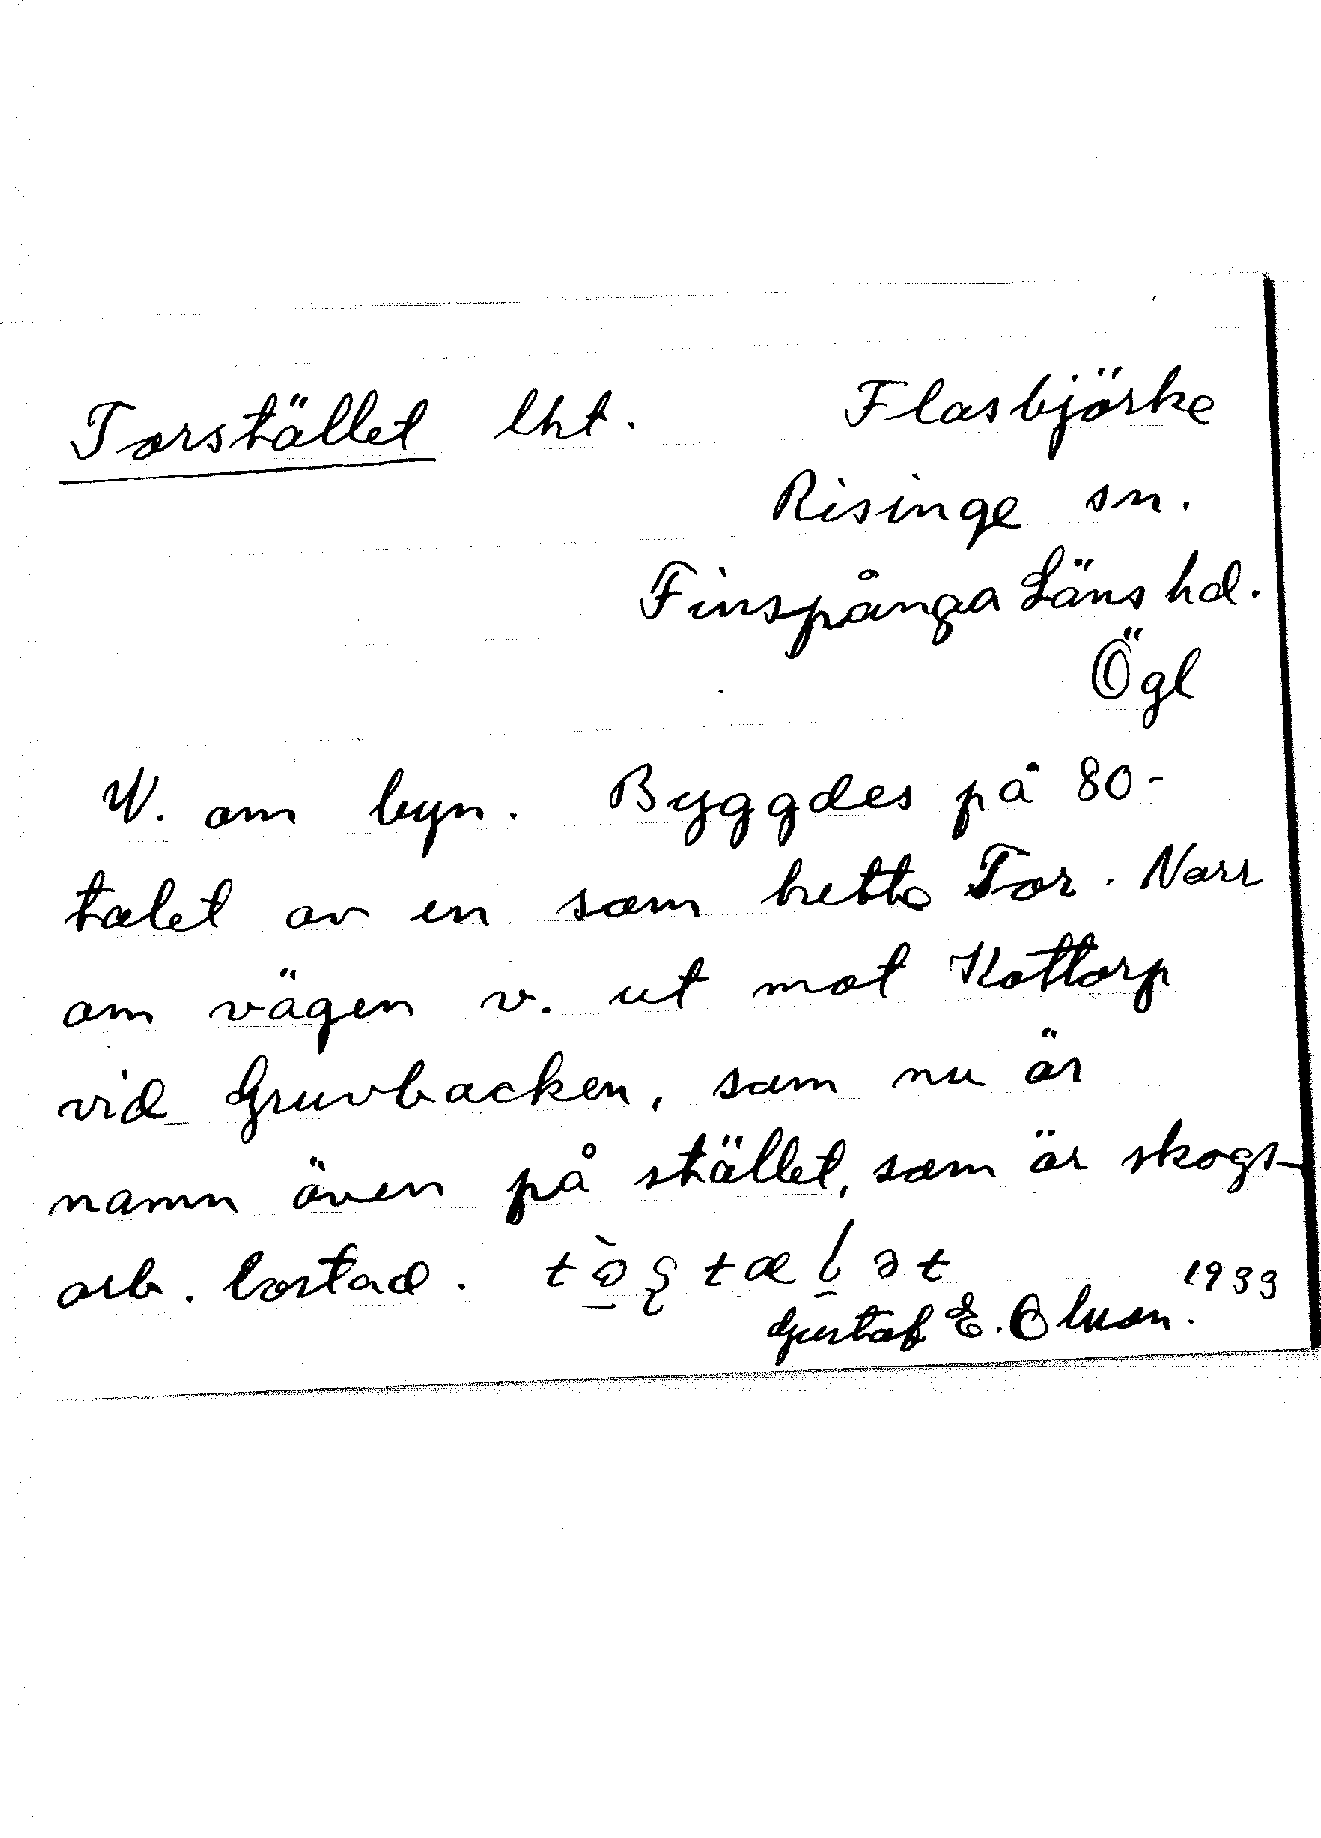 Torstället lht. Flasbjörke
Risinge sn.
Finspånga Läns hd.
Ögl
V. om byn. Byggdes på 80-
talet av en som hette Tor. Norr
om vägen v. ut mot Kottorp
vid Gruvbacken, som nu är
namn även på stället, som är skogs-
arb. bostad.
1933
Gustaf E. Olsson.